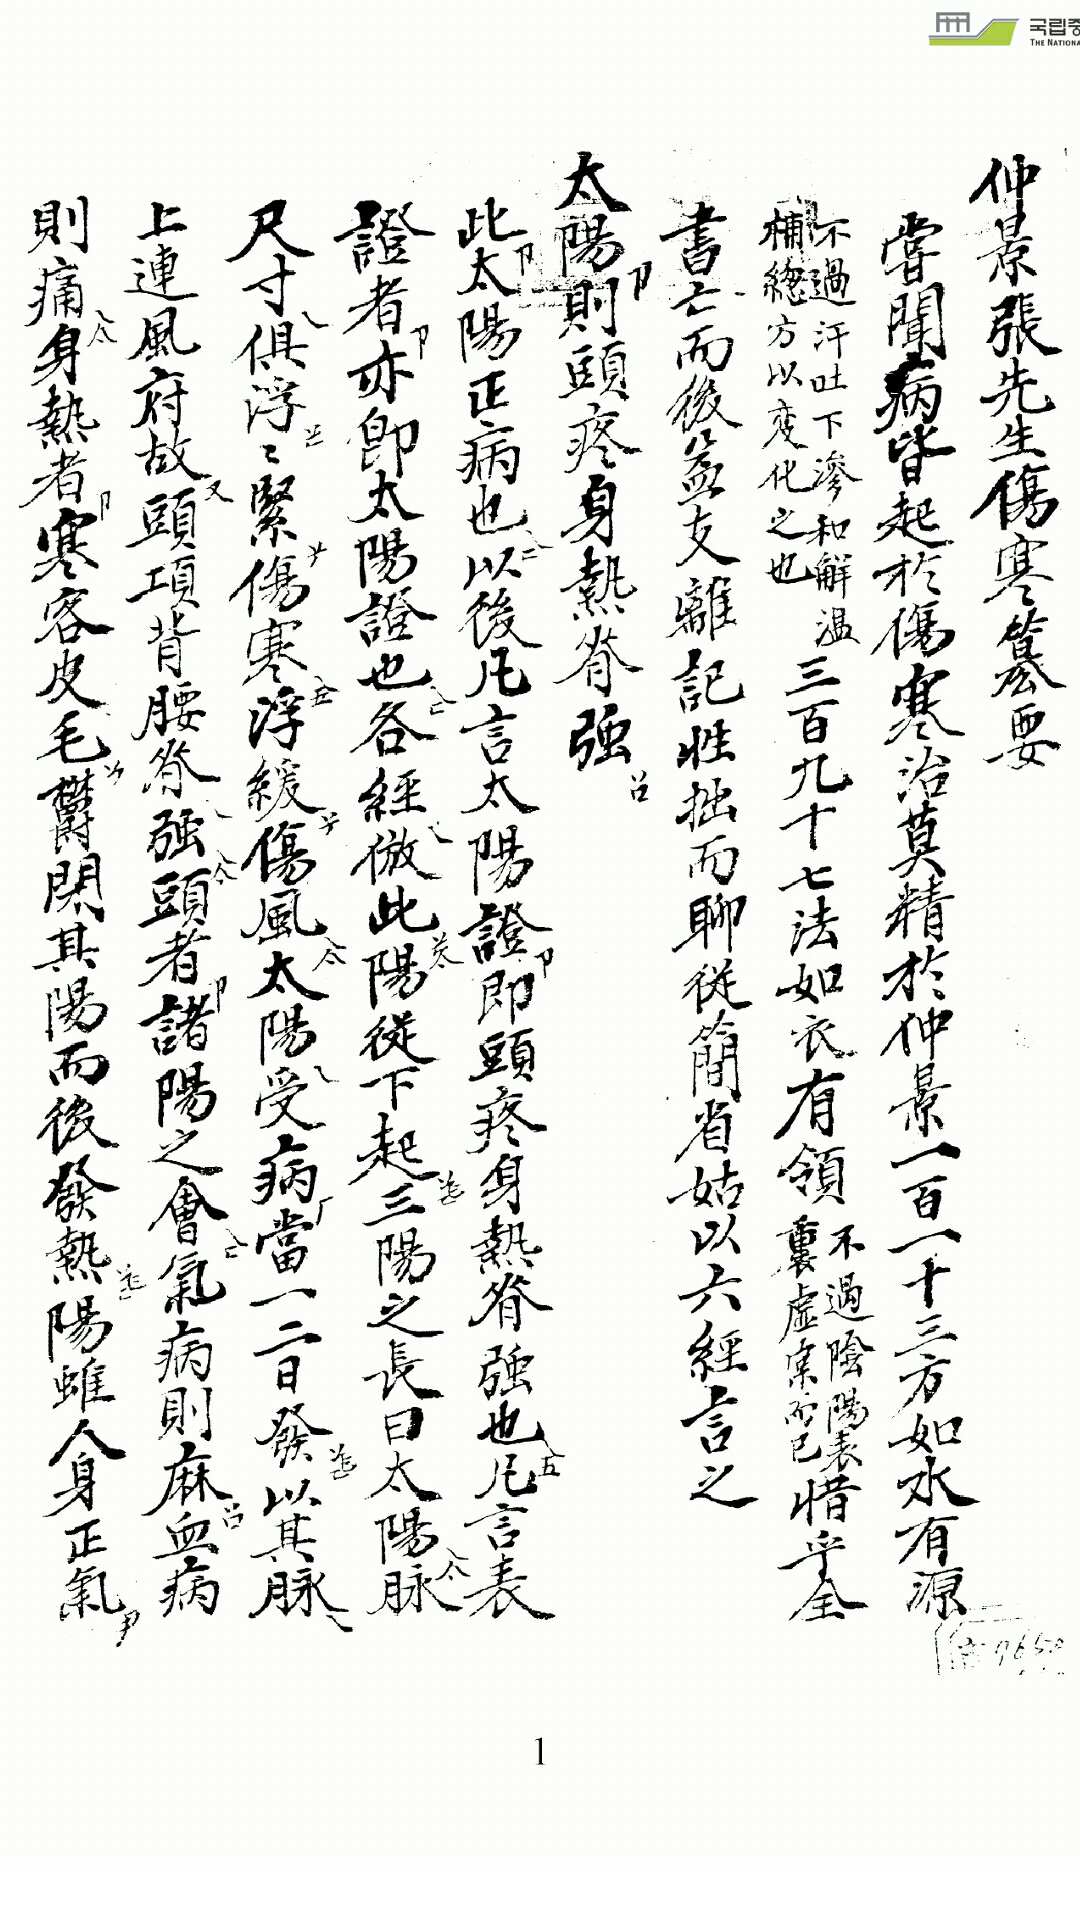 국립중
THE NATIONA
仲景張先生傷寒纂要
嘗聞病皆起於傷寒治莫精於仲景一百一十三方如水有源
不過汗吐下滲和解溫
補總方以变化之也
三百九十七法如衣有領
不過陰陽表
裏虛寀而已
惜乎全
書亡而後益支離記性拙而聊從簡省姑以六經言之
太陽則頭疼身熱脊强
此太陽正病也以後凡言太陽證即頭疼身熱脊强也凡言表
證者亦卽太陽證也各經倣此陽從下起三陽之長曰太陽脉
尺寸俱浮〻緊傷寒浮緩傷風太陽受病當一二日發以其脉
上連風府故頭項背腰脊强頭者諸陽之會氣病則麻血病
則痛身熱者寒客皮毛欝閉其陽而後發熱陽雖人身正氣
1